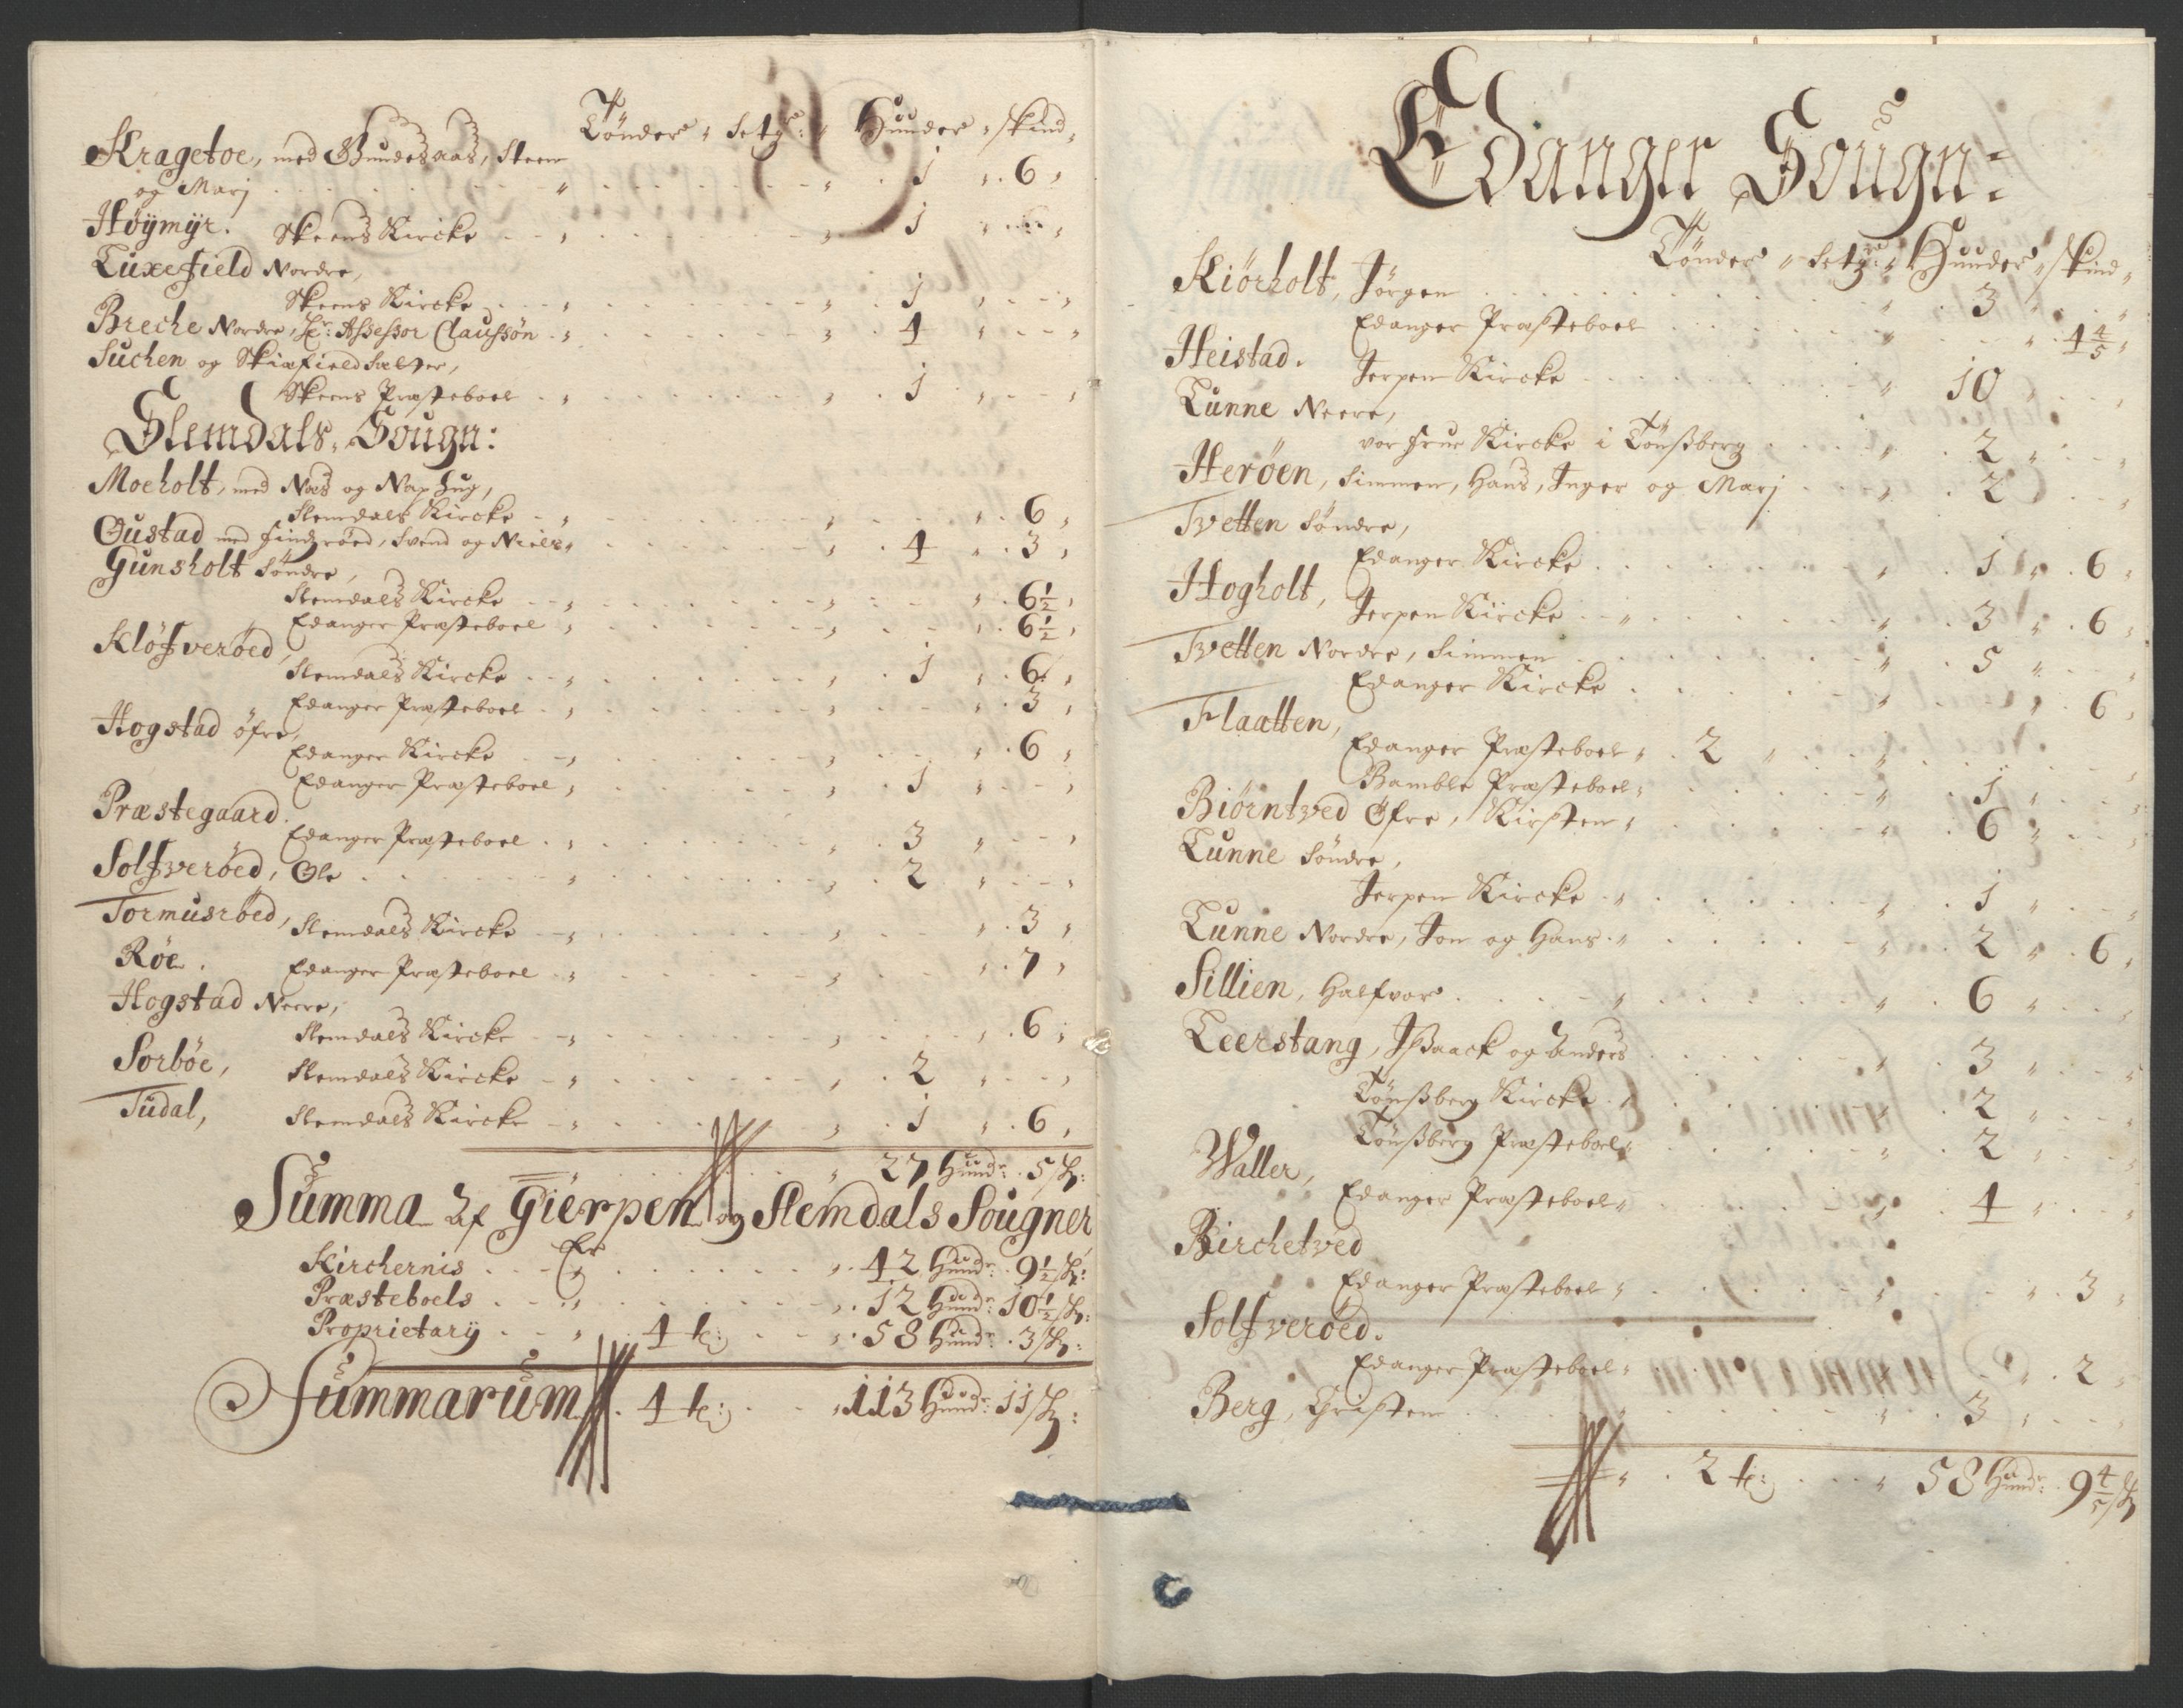 Tönder " Setgr: " Hunder " skind "
Kragetoe, med Gundesaas, Steen
og Marj . . . " . . . " . 1 " . 6 "
Höymyr. Skeens Kircke . . " . . . " . 1 "
Luxefield Nordre,
Skeens Kircke . . " . . . " . 1 " . . "
Breche Nordre, Hr: Assessor Claussön . " . . . " . 4 " . . "
Suchen og Skiæfield Sælter,
Skeens Præsteboel . " . . . " . 1 " . . "
Slemdals Sougn:
Moeholt, med Næs og Nap Hug,
Slemdals Kircke . . " . . . " . . " . 6 "
Gustad med Findzröed, Svend og Niels " . . . " . 4 " . 3 "
Gunsholt Söndre,
Slemdals Kircke . . " . . . " . . " . 6 1/2 "
Edanger Præsteboel " . . . " . . " . 6 1/2 "
Klöfveröed,
Slemdals Kircke . . " . . . " . 1 " . 6 "
Edanger Præsteboel . " . . . " . . " . 3 "
Hogstad öfre,
Edanger Kircke . . " . . . " . . " . 6 "
Edanger Præsteboel " . . . " . 1 " . . "
Præstegaard.
Edanger Præsteboel . " . . . " . 3 " . . "
Solfveröed, Ole . . . " . . . " . 2 " . . "
Tormusröed, Slemdals Kircke . . " . . . " . . " . 3 "
Röe. Edanger Præsteboel . " . . . " . . " . 7 "
Hogstad Neere,
Slemdals Kircke . . " . . . " . . " . 6 "
Sorböe, Slemdals Kircke . . " . . . " . 2 " . . "
Tudal, Slemdals Kircke . . " . . . " . 1 " . 6 "
" . . . " 27 Hund: . 5 sk:
Summa af Gierpen og Slemdals Sougner
Er
Kirchernis . . " . . . " . 42 Hund: . 9 1/2 sk:
Præsteboels . . " . . . " . 12 Hund: 10 1/2 sk:
Proprietary . . " . 4 t: . . " . 58 Hund: . 3 sk:
Summarum . 4 t: . . " 113 Hund: 11 sk:
Edanger Sougn:
Tönder " Setgr: " Hunder " skind "
Kiörholt, Jörgen . . . " . 3 " . . "
Edanger Præsteboel . . . " . . " . 4 4/5 "
Heistad. Jerpen Kircke . . . " . 10 . . "
Lunne Neere,
vor Frue Kircke i Tönßberg . . " . 2 " . . "
Heröen, Simmen, Hans, Inger og Marj . . " . 2 . . "
Tvetten Söndre,
Edanger Kircke . . . " . 1 " . 6 "
Hogholt, Jerpen Kircke . . " . . . " . 3 " . 6 "
Tvetten Nordre, Simmen . . . " . 5 " . . "
Edanger Kircke . . . " . . " . 6 "
Flaatten,
Edanger Præsteboel " . 2 " . . " . . . "
Bamble Præsteboel " . . . " . 1 " . . "
Biörntved Öfre, Kirsten " . . . " . 6 " . . "
Lunne Söndre,
Jerpen Kircke . " . . . " . 1 " . . "
Lunne Nordre, Jon og Hans . " . . . " . 2 " . 6 "
Sillien, Halfvor . . . " . . . " . 6 " . . "
Leerstang, Jßaack og Anders . . . " . 3 " . . "
Tönßberg Kircke . " . . . " . 2 " . . "
Tönßberg Præsteboel " . . . " . 2 " . . "
Waller,
Edanger Præsteboel " . . . " . 4 " . . "
Birchetved
Edanger Præsteboel " . . . " . . " . 3 "
Solfveröed.
Edanger Præsteboel " . . . " . . " . 2 "
Berg, Christen . . . " . . . " . 3 " . . "
" . 2 t: . . . " 58 Hund: . 9 4/5 sk